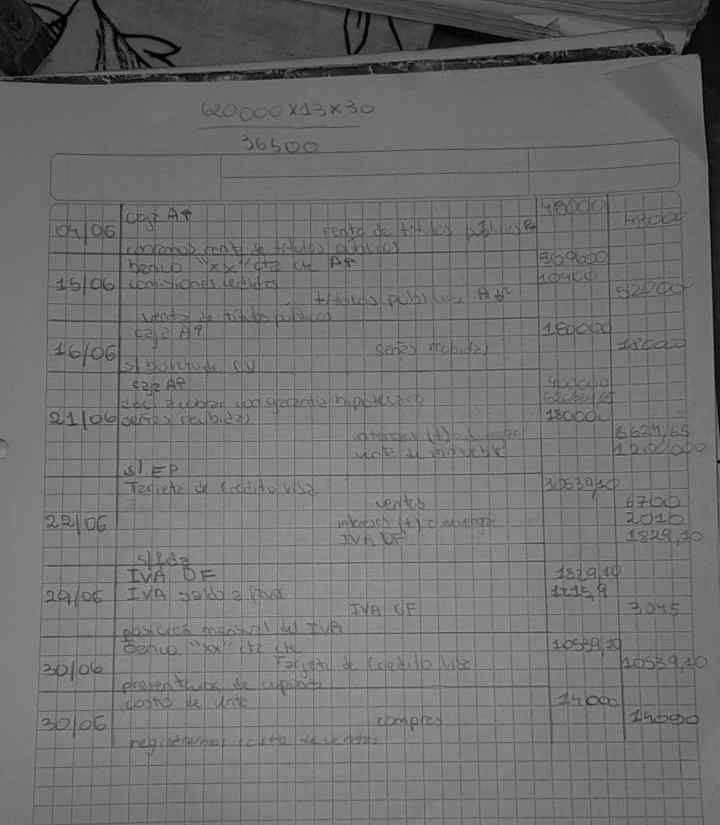 620000x13x30
36500
caja A↑ 48000
04/06 venta de titulos públicos R+ 48000
venta de titulos públicos
banco "xx" cta cte A↑ 509600
15/06 comisiones cedidas 10400
titulos publicos A↓ 52000
venta de titulos publicos
caja A↑ 180000
16/06 señas recibidas 180000
s/ boleto de CV
caja A↑ 400000
doc a cobrar con garantia hipotecaria
21/06 señas recibidas 180000
intereses (+) a 6624,65
venta de inmueble 1200000
s/ EP
Tarjeta de Credito visa 10539,10
ventas 6700
22/06 intereses (+) a devengar 2010
IVA DF 1829,10
IVA DF 1829,10
29/06 IVA saldo a favor 1215,9
IVA CF 3045
posición mensual del IVA
banco "xx" cta cte 10539,10
30/06 Tarjeta de Credito visa 10539,10
presentamos de cupones
costo de vta 14000
30/06 compras 14000
registramos costo de ventas